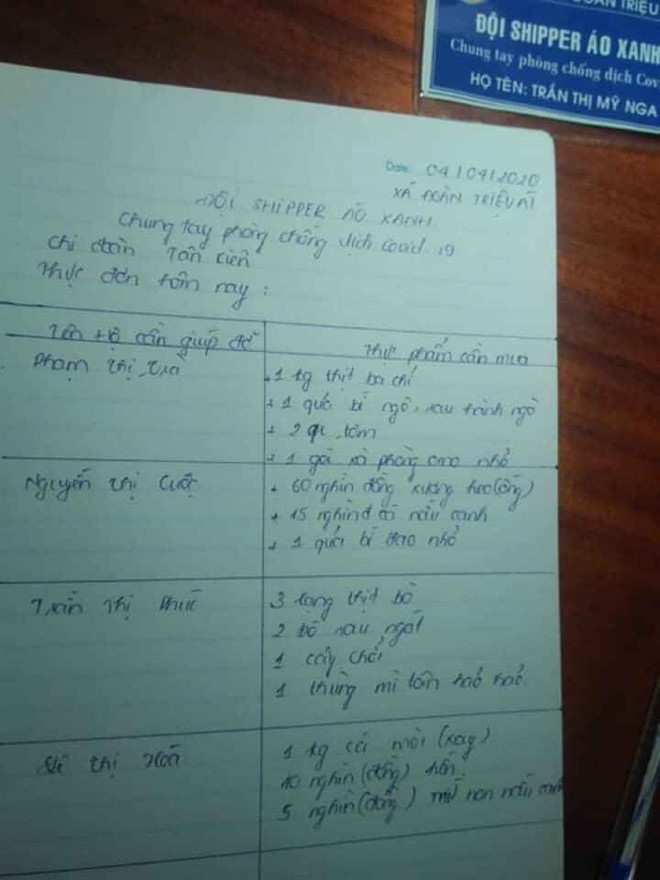 ĐOÀN TRIỆU
ĐỘI SHIPPER ÁO XANH
Chung tay phòng chống dịch Cov
HỌ TÊN: TRẦN THỊ MỸ NGA
Date: 04/04/2020
XÃ ĐOÀN TRIỆU ÁI
ĐỘI SHIPPER ÁO XANH
Chung tay phòng chống dịch Covid 19
Chi đoàn Tân Kiên
Thực đơn hôm nay :
Tên hộ cần giúp đỡ
Thực phẩm cần mua
Phạm Thị Trà
+ 1 kg thịt ba chỉ
+ 1 quả bí ngô, rau hành ngò
+ 2 tôm
+ 1 gói xà phòng omo nhỏ
Nguyễn Thị
+ 60 nghìn đồng xương heo (ống)
+ 15 nghìn đ cá nấu canh
+ 1 quả bí đao nhỏ
Trần Thị
3 lạng thịt bò
2 bó rau ngót
1 cây chổi
1 thùng mì tôm hảo hảo
Thị Hoá
1 kg cá mòi (xay)
10 nghìn (đồng) hến
5 nghìn (đồng) mít non nấu canh